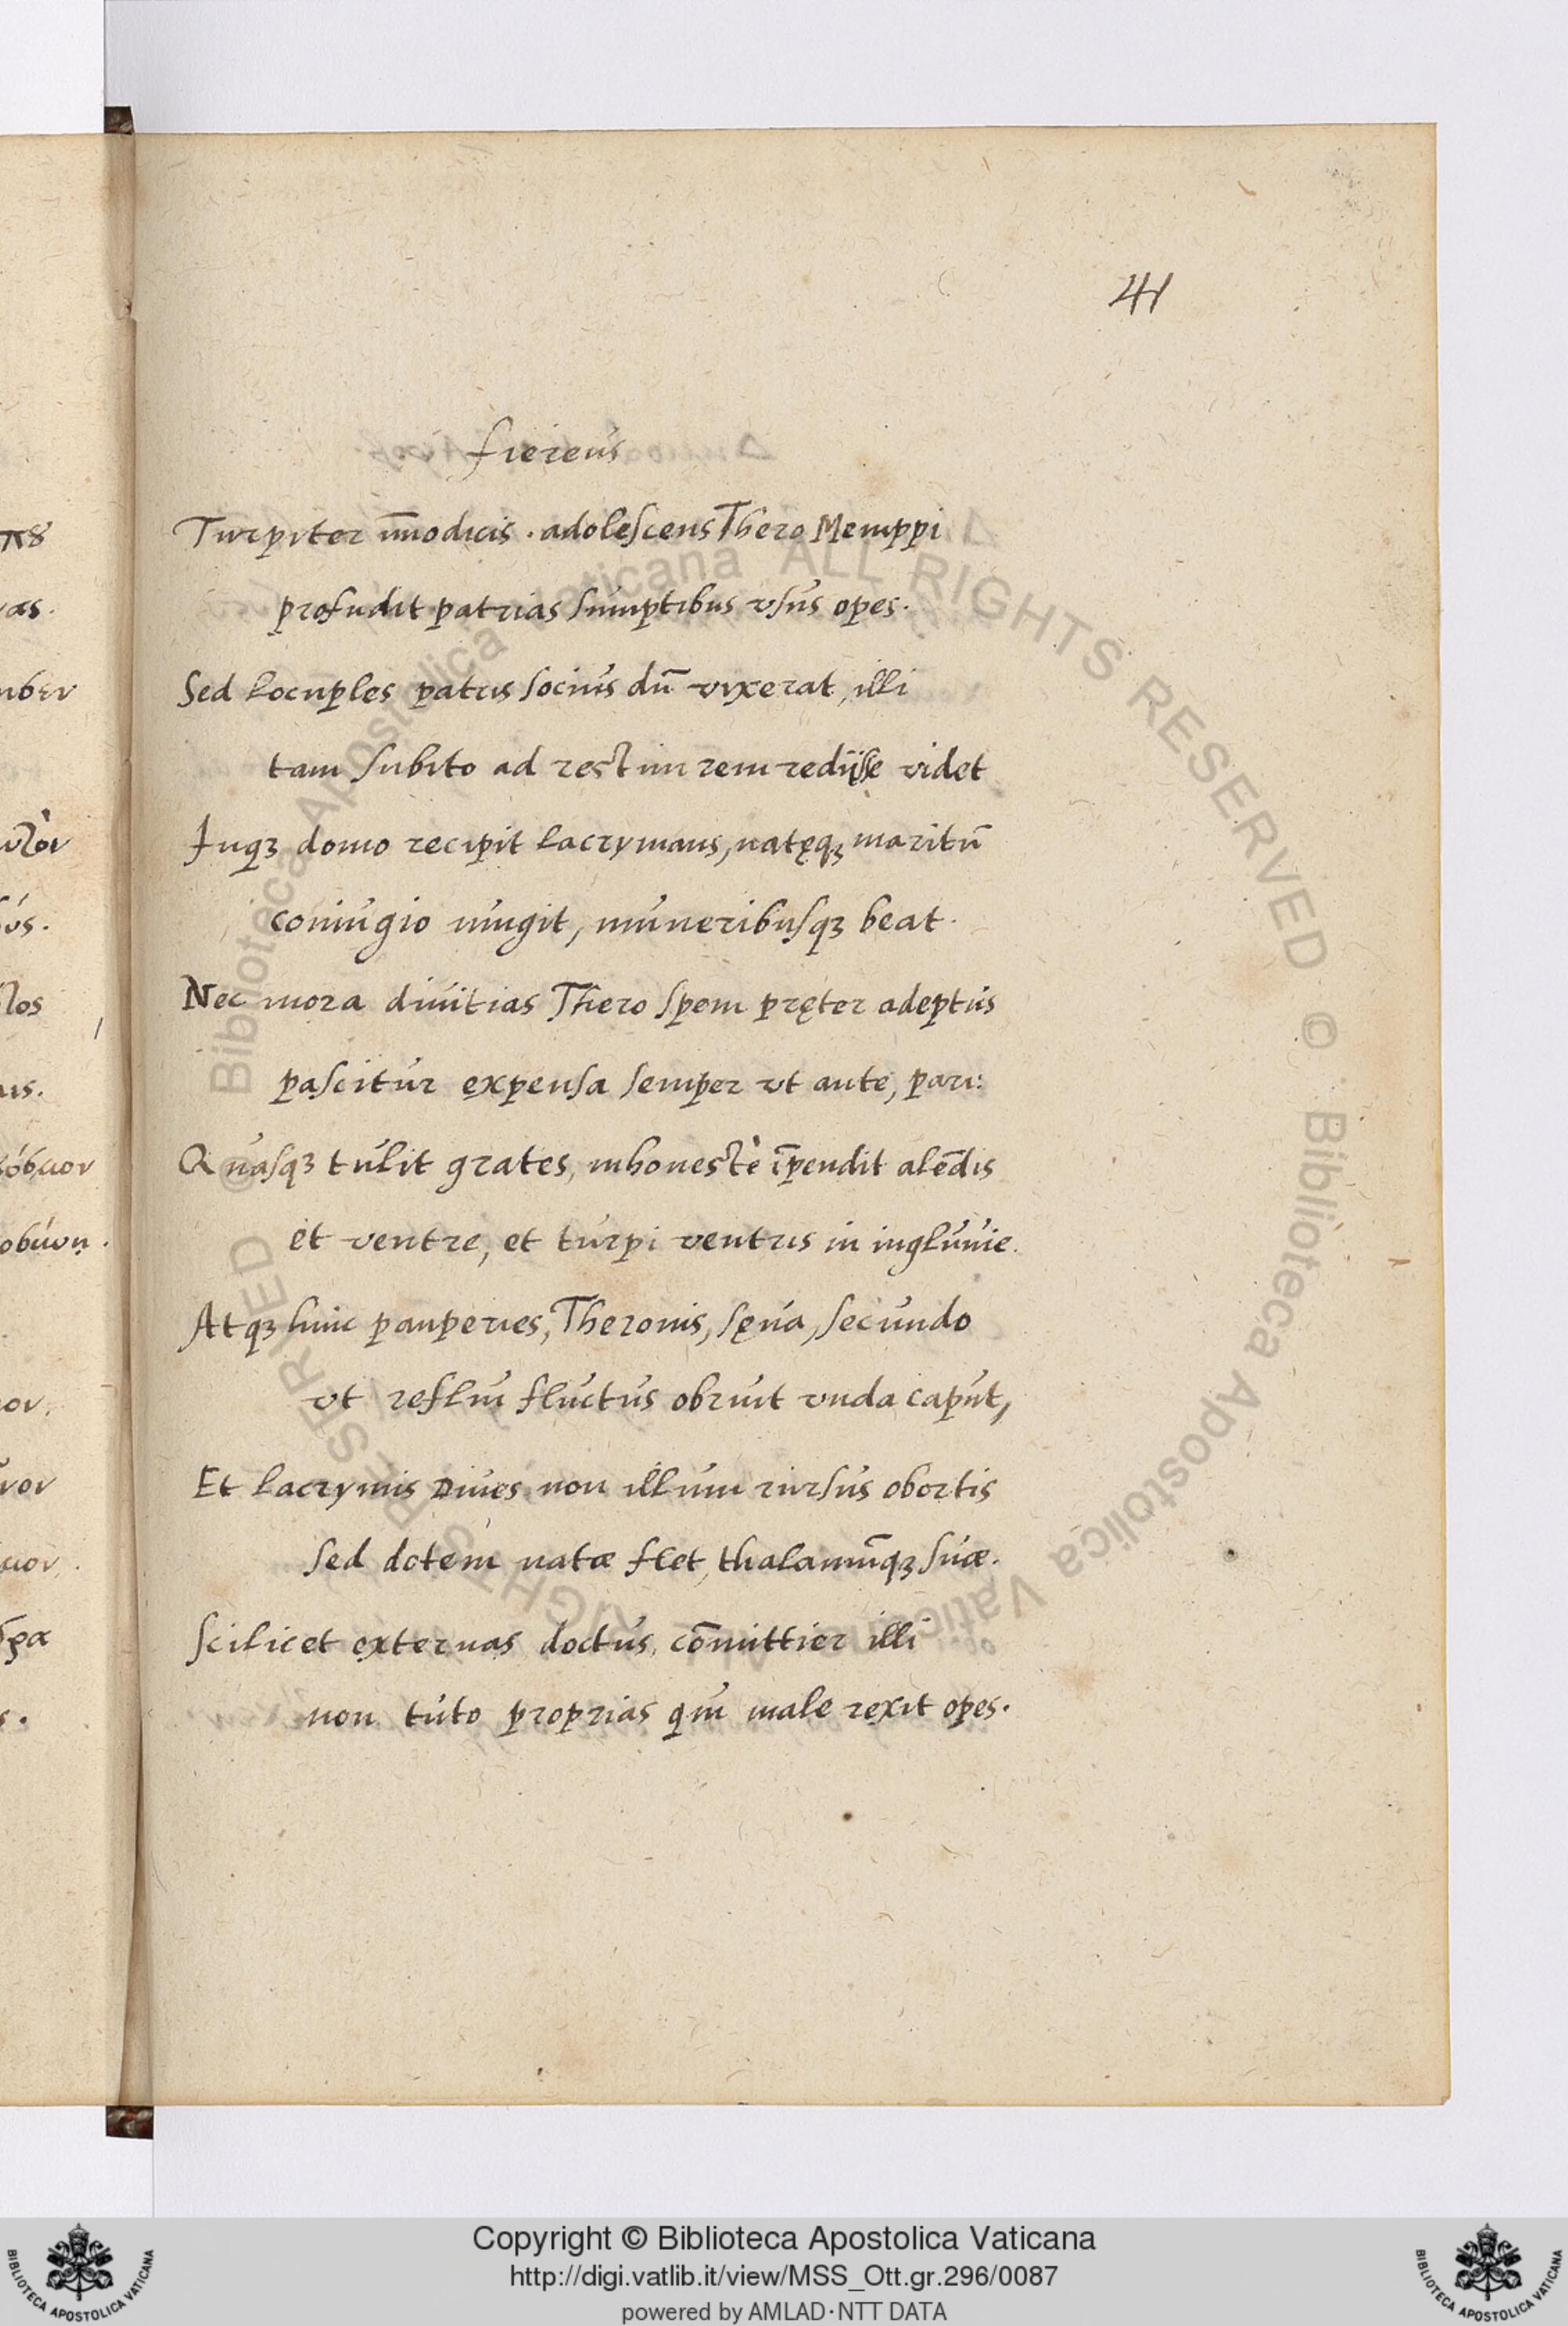 41
fiereus
Turpiter im̄odicis . adolescens Thero Menippi
profudit patrias sumptibus usus opes.
Sed locuples patris socius dū vixerat, illi
tam subito ad restim rem rediisse videt
Inqꝫ domo recipit lacrymans, natęqꝫ maritū
coniugio iungit, muneribusqꝫ beat.
Nec mora divitias Thero spem pręter adeptus
pascitur expensa semper vt ante, pari:
Quasqꝫ tulit grates, inhonestè īpendit alēdis
et ventre, et turpi ventris in ingluuie.
Atqꝫ hunc pauperies, Theronis, sęua, secundo
vt reflui fluctus obruit vnda caput,
Et lacrymis Diues non illum rursus obortis
sed dotem natæ flet, thalamūqꝫ suæ.
Scilicet externas doctus, cōmittier illi
non tuto proprias qui male rexit opes.
πȣ
νας.
υτὸν
ούς.
λος
αις.
ον.
νον
ς.
Biblioteca Apostolica Vaticana ALL RIGHTS RESERVED © Biblioteca Apostolica Vaticana ALL RIGHTS RESERVED ©
Copyright © Biblioteca Apostolica Vaticana
http://digi.vatlib.it/view/MSS_Ott.gr.296/0087
powered by AMLAD·NTT DATA
BIBLIOTECA APOSTOLICA VATICANA
BIBLIOTECA APOSTOLICA VATICANA